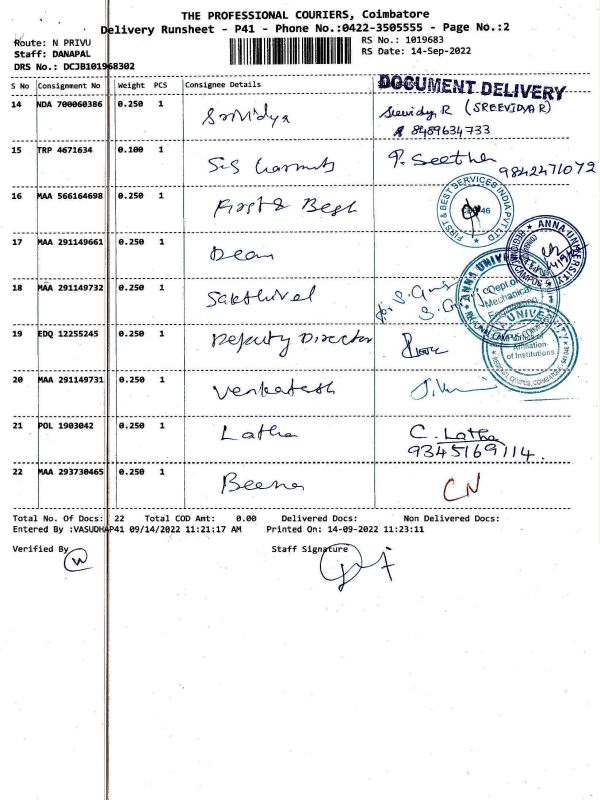 THE PROFESSIONAL COURIERS, Coimbatore
Delivery Runsheet - P41 - Phone No.:0422-3505555 - Page No.:2
Route: N PRIVU
RS No.: 1019683
Staff: DANAPAL
RS Date: 14-Sep-2022
DRS No.: DCJB101968302
S No Consignment No Weight PCS Consignee Details
DOCUMENT DELIVERY
14 NDA 700060386 0.250 1 Srividya Sreevidya R (SREEVIDYA R)
8489634733
15 TRP 4671634 0.100 1 Sis P. Seetha
9842471072
16 MAA 566164698 0.250 1 First & Best
FIRST & BEST SERVICES INDIA PVT LTD
17 MAA 291149661 0.250 1 Dean
ANNA UNIVERSITY
18 MAA 291149732 0.250 1 Sakthivel for S.
ANNA UNIVERSITY
Dept.of
Mechanical
Engineering
REGIONAL CAMPUS
19 EDQ 12255245 0.250 1 Deputy Director
UNIVERSITY
Affiliation
of Institutions
20 MAA 291149731 0.250 1 Venkatesh
21 POL 1903042 0.250 1 Latha C. Latha
9345169114.
22 MAA 293730465 0.250 1 Beena CN
Total No. Of Docs: 22 Total COD Amt: 0.00 Delivered Docs: Non Delivered Docs:
Entered By :VASUDHAP41 09/14/2022 11:21:17 AM Printed On: 14-09-2022 11:23:11
Verified By Staff Signature